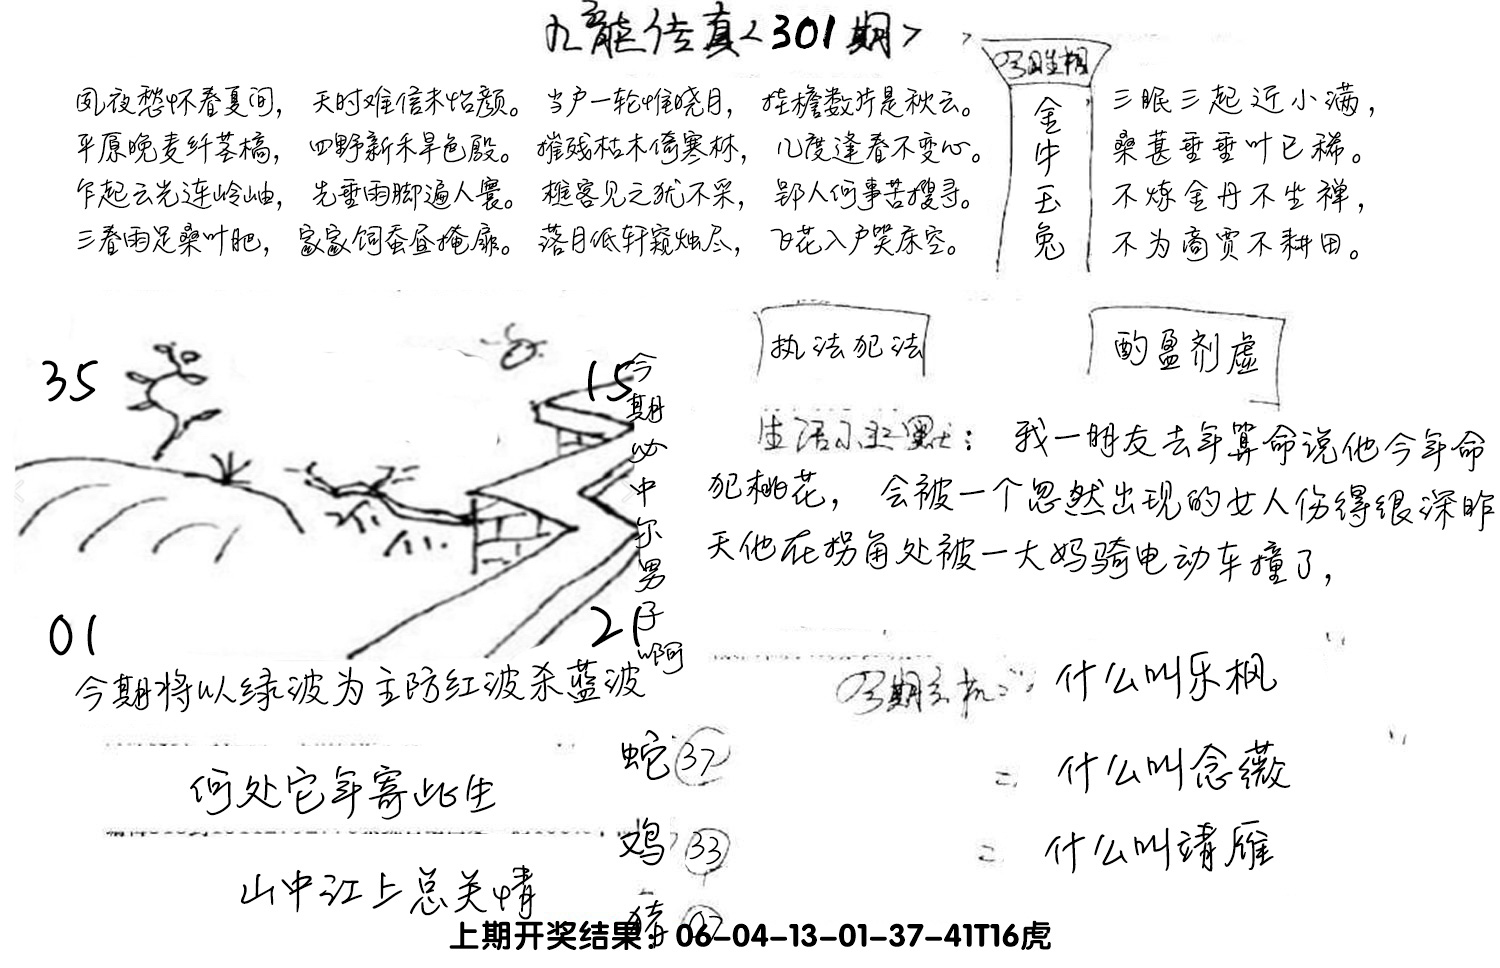 九龙传真<301期>
夙夜愁怀春夏间，天时难信未怡颜。当户一轮惟晓月，挂檐数片是秋云。
平原晚麦纤茎槁，四野新禾旱色殷。摧残枯木倚寒林，几度逢春不变心。
乍起云光连岭岫，先垂雨脚遍人寰。樵客见之犹不采，郢人何事苦搜寻。
三春雨足桑叶肥，家家饲蚕昼掩扉。落月低轩窥烛尽，飞花入户笑床空。
金牛玉兔
三眠三起近小满，
桑葚垂垂叶已稀。
不炼金丹不坐禅，
不为商贾不耕田。
执法犯法
酌盈剂虚
35
15
01
21
今期必中尔男子啊
生活幽默：我一朋友去年算命说他今年命
犯桃花，会被一个忽然出现的女人伤得很深昨
天他在拐角处被一大妈骑电动车撞了，
今期将以绿波为主防红波杀蓝波
何处它年寄此生
山中江上总关情
蛇37
鸡33
猪
今期玄机：什么叫乐枫
=什么叫念薇
=什么叫靖雁
上期开奖结果：06-04-13-01-37-41T16虎